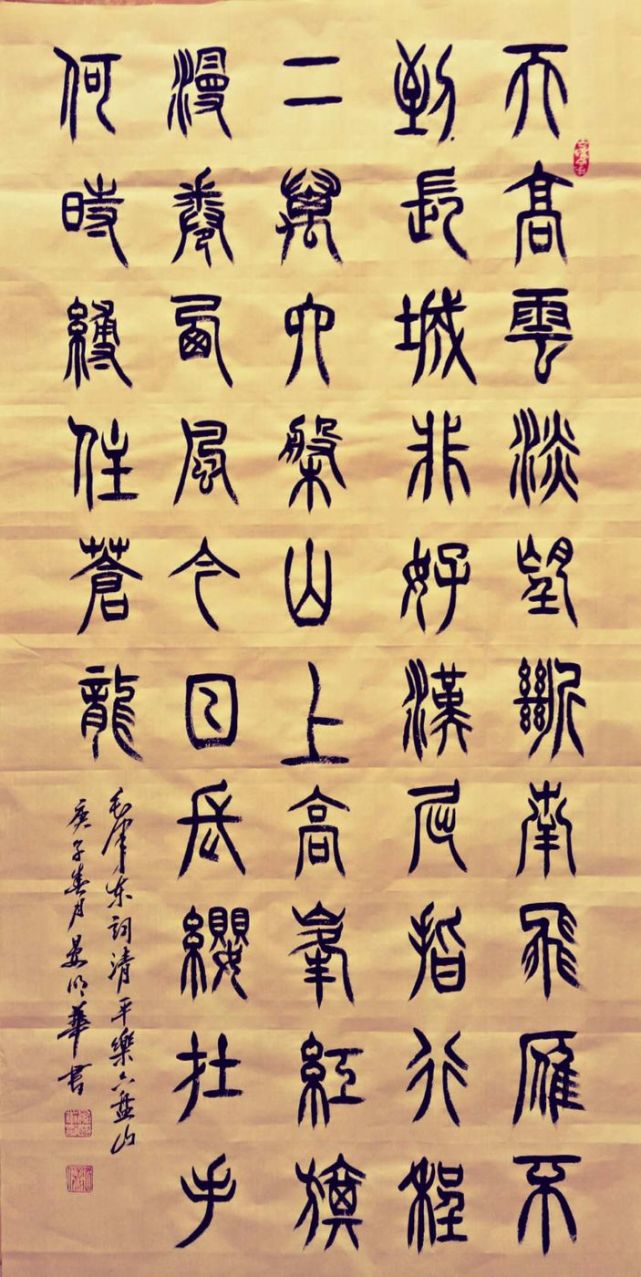 天高雲淡望斷南飛雁不
到長城非好漢屈指行程
二萬六槃山上高峯紅旗
漫卷西風今日長纓在手
何時縛住蒼龍
毛泽东词清平樂六盘山
庚子春月明華書